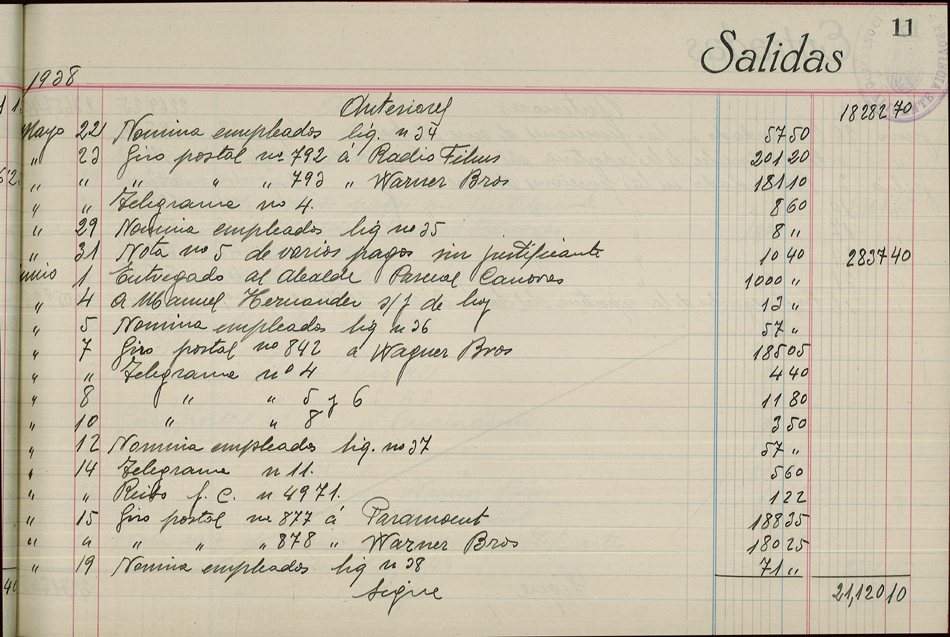 11
Salidas
1938
Anteriores 18282 70
Mayo 22 Nomina empleados liq. n 34 57 50
" 23 Giro postal nº 792 á Radio Films 201 20
" " " " " 793 " Warner Bros 181 10
" " Telegrama nº 4. 8 60
" 29 Nomina empleados liq nº 35 8 "
" 31 Nota nº 5 de varios pagos sin justificante 10 40 2837 40
Junio 1 Entregado al Alcalde Pascual Canovas 1000 "
" 4 A Manuel Hernandez s/f de luz 13 "
" 5 Nomina empleados liq n 36 57 "
" 7 Giro postal nº 842 á Wagner Bros 185 05
" " Telegrama nº 4 4 40
" 8 " " 5 y 6 11 80
" 10 " " 8 3 50
" 12 Nomina empleados liq. nº 37 57 "
" 14 Telegrama n 11. 5 60
" " Recibo f. C. n 4971. 1 22
" 15 Giro postal nº 877 á Paramount 188 35
" " " " " 878 " Warner Bros 180 25
" 19 Nomina empleados liq n 38 71 "
Sigue 21,120 10